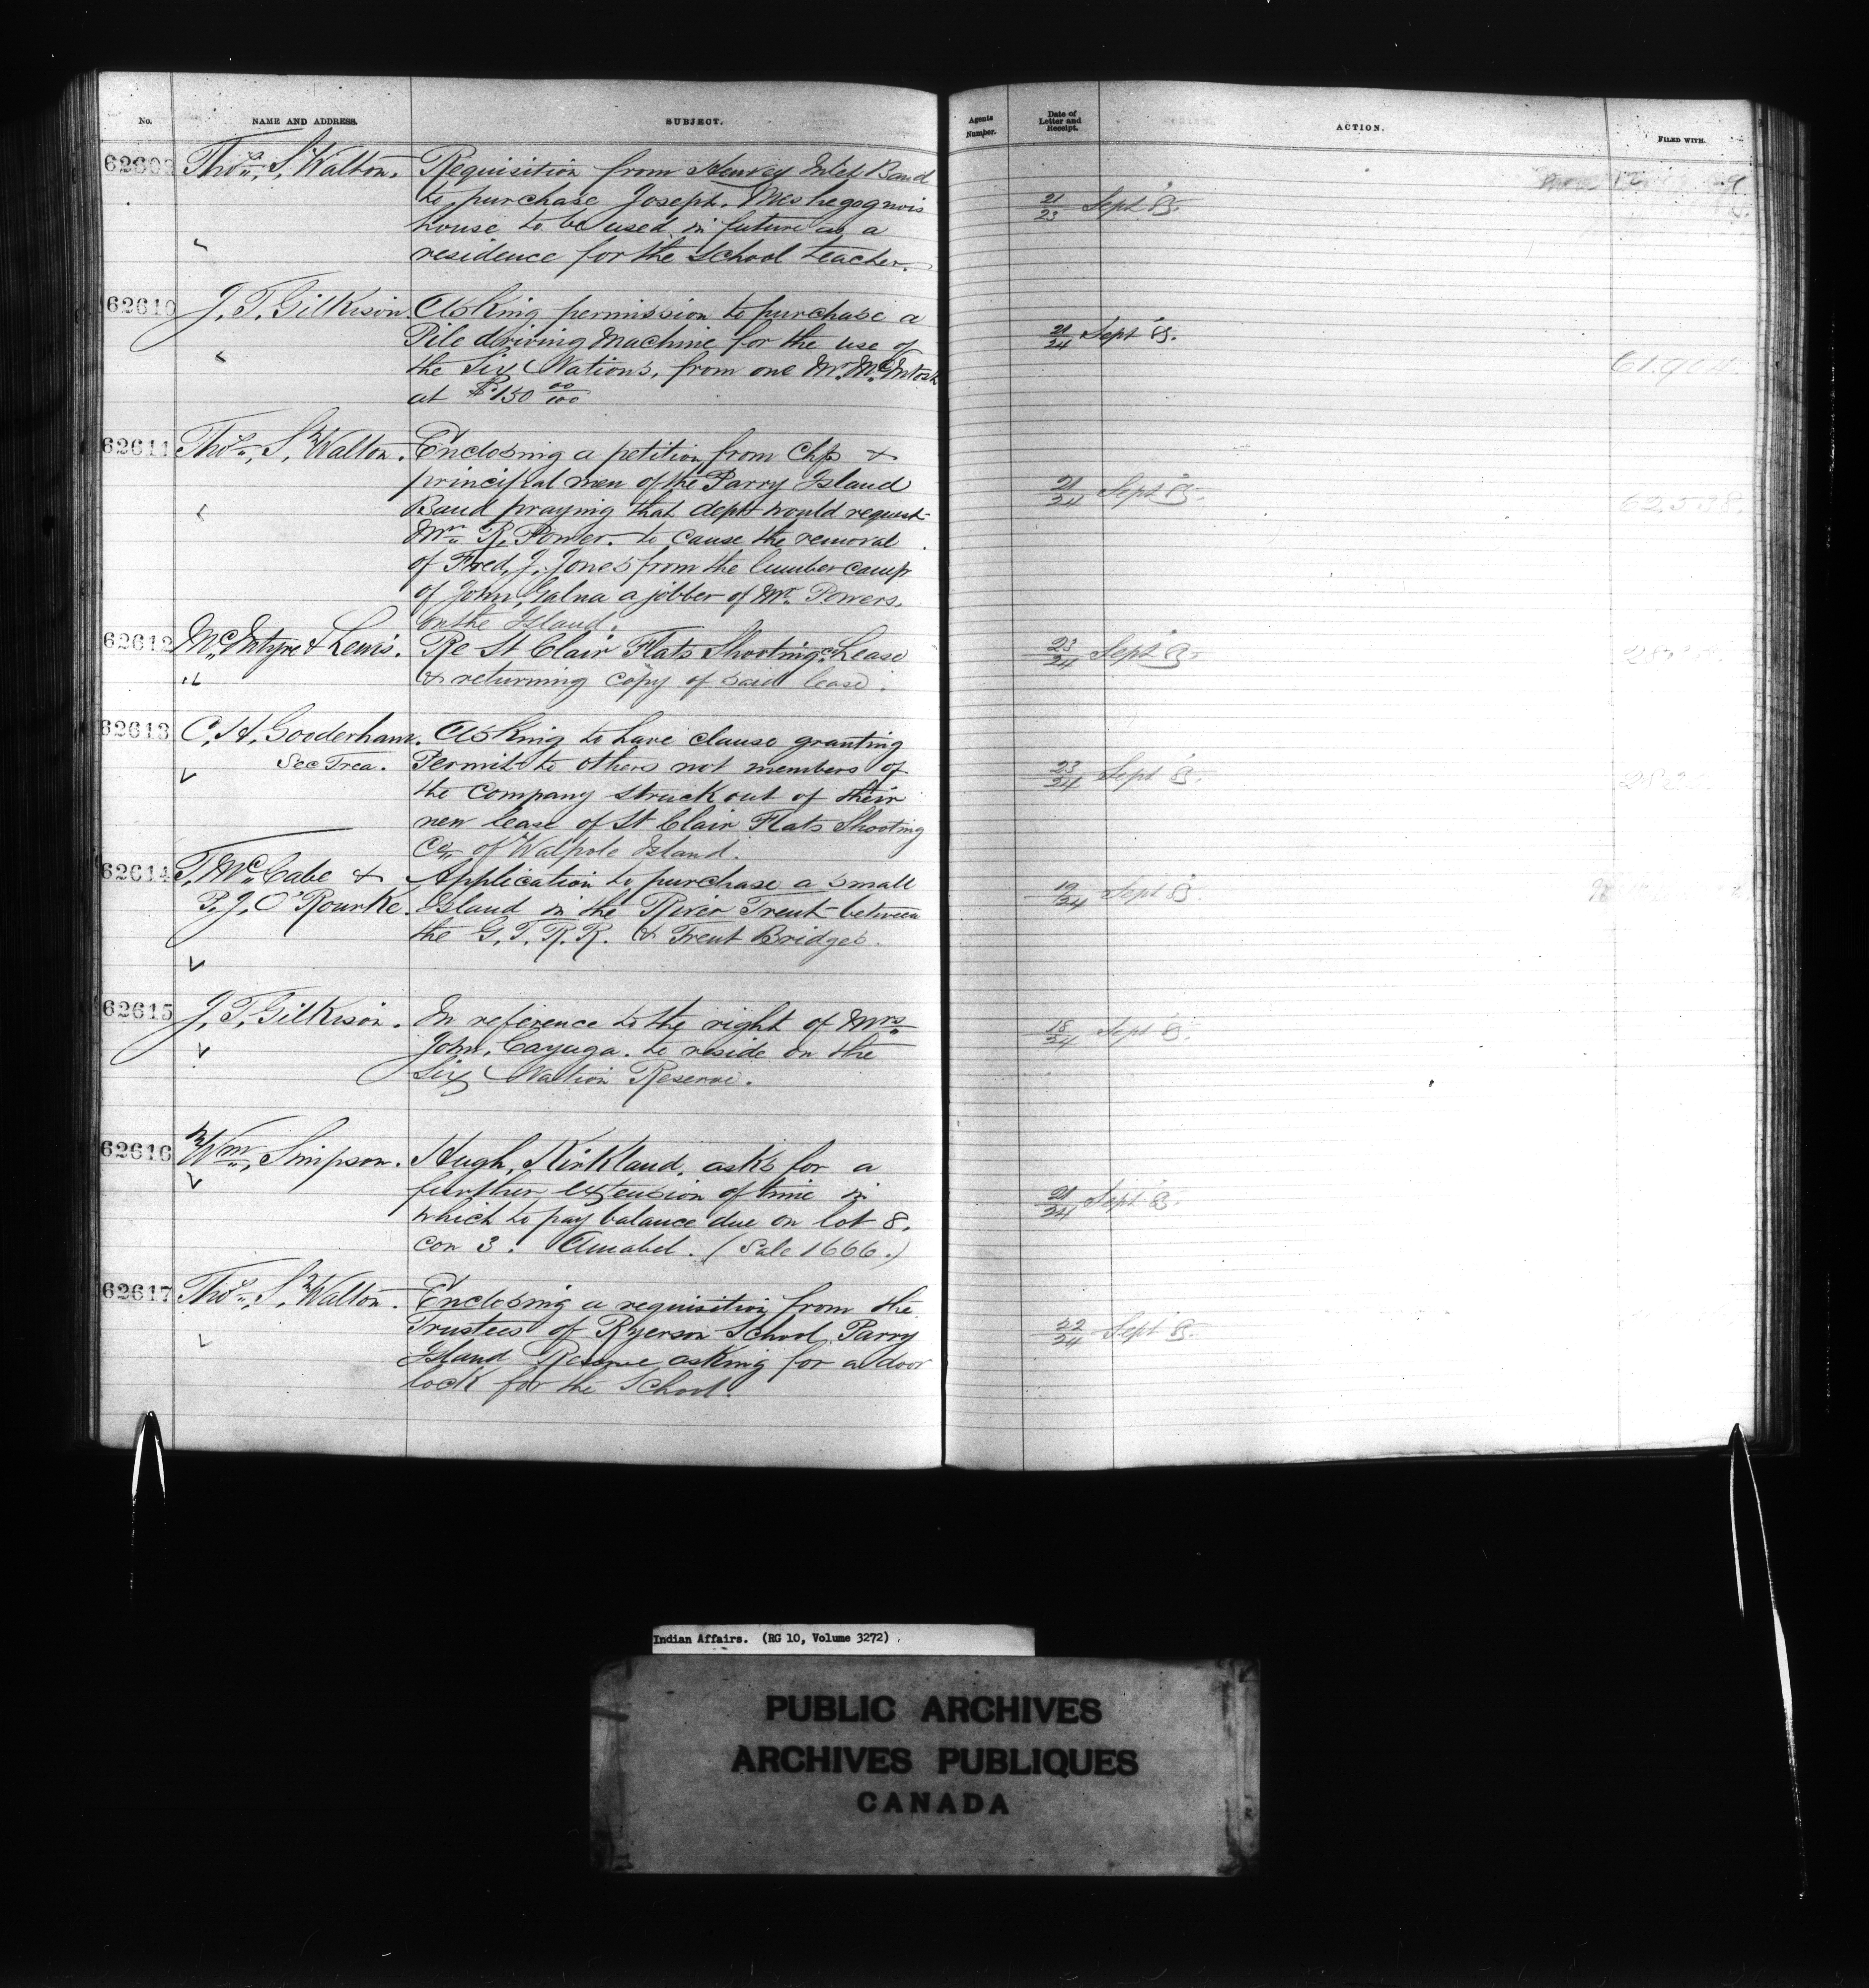 No. NAME AND ADDRESS. SUBJECT. Agents Number. Date of Letter and Receipt. ACTION. FILED WITH.
62609 Thos. S. Walton. Requisition from Henvey Inlet Band
to purchase Joseph
house to be used in future as a
residence for the School teacher.
21/23 Sept 85.
62610 J. T. Gilkison. Asking permission to purchase a
Pile driving Machine for the use of
the Six Nations, from one Mr. McIntosh
at $150 00/100
21/24 Sept 85.
61.904.
62611 Thos. S. Walton. Enclosing a petition from Chfs &
principal men of the Parry Island
Band praying that dept would request
R. Power. to cause the removal
of Fred. J. Jones from the lumber camp
of John, Galna a jobber of Mr. Powers.
on the Island.
21/24 Sept 85.
62,598.
62612 McIntyre & Lewis. Re St Clair Flats Shooting Co Lease
& returning copy of said lease.
23/24 Sept 85.
62613 C. H. Gooderham. Asking to have clause granting
Sec Trea. Permit to others not members of
the Company struck out of their
new lease of St Clair Flats Shooting
Co. of Walpole Island.
23/24 Sept 85.
62614 T. McCabe & Application to purchase a small
P. J. O'Rourke. Island in the River Trent between
the G. T. R. R. & Trent Bridges.
19/24 Sept 85.
62615 J. T. Gilkison. In reference to the right of Mrs
John, Cayuga. to reside on the
Six Nation Reserve.
18/24 Sept 85.
62616 Wm. Simpson. Hugh, Kirkland. asks for a
further extension of time in
which to pay balance due on lot 8.
con 3. Amabel. (Sale 1666.)
21/24 Sept 85.
62617 Thos. S. Walton. Enclosing a requisition from the
Trustees of Ryerson School Parry
Island Reserve asking for a door
lock for the School.
22/24 Sept 85.
Indian Affairs. (RG 10, Volume 3272)
PUBLIC ARCHIVES
ARCHIVES PUBLIQUES
CANADA